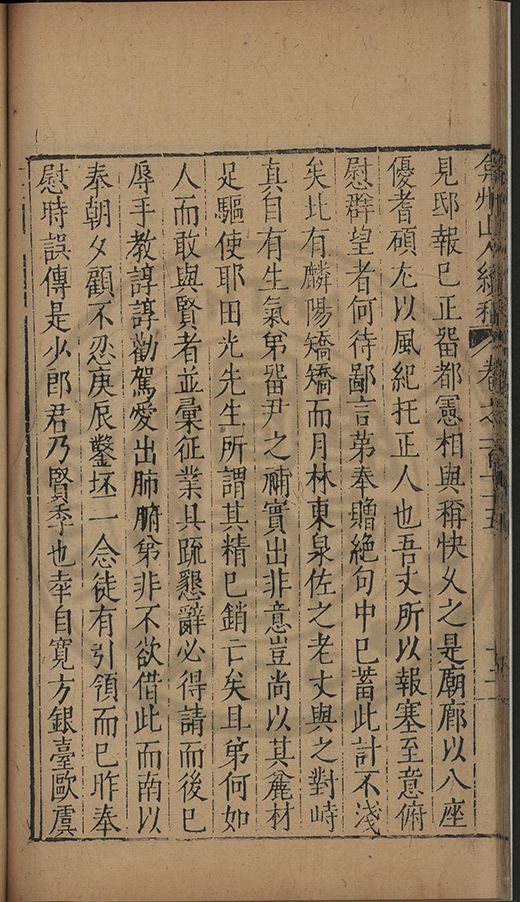 弇州山人續稿 卷之一百十五 十二
見邸報已正畱都憲相與稱快乆之是廟廊以八座
優耆碩尢以風紀托正人也吾丈所以報塞至意俯
慰群望者何待鄙言第奉贈絶句中已蓄此計不淺
矣此有麟陽矯矯而月林東泉佐之老丈與之對峙
真自有生氣第畱尹之補實出非意豈尚以其麄材
足驅使耶田光先生所謂其精已銷亡矣且弟何如
人而敢與賢者並彙征業具疏懇辭必得請而後已
辱手教諄諄勸駕愛出肺腑第非不欲借此而南以
奉朝夕顧不忍庚辰鑿坯一念徒有引領而已昨奉
慰時誤傳是少郎君乃賢季也幸自寬方銀臺歐虞